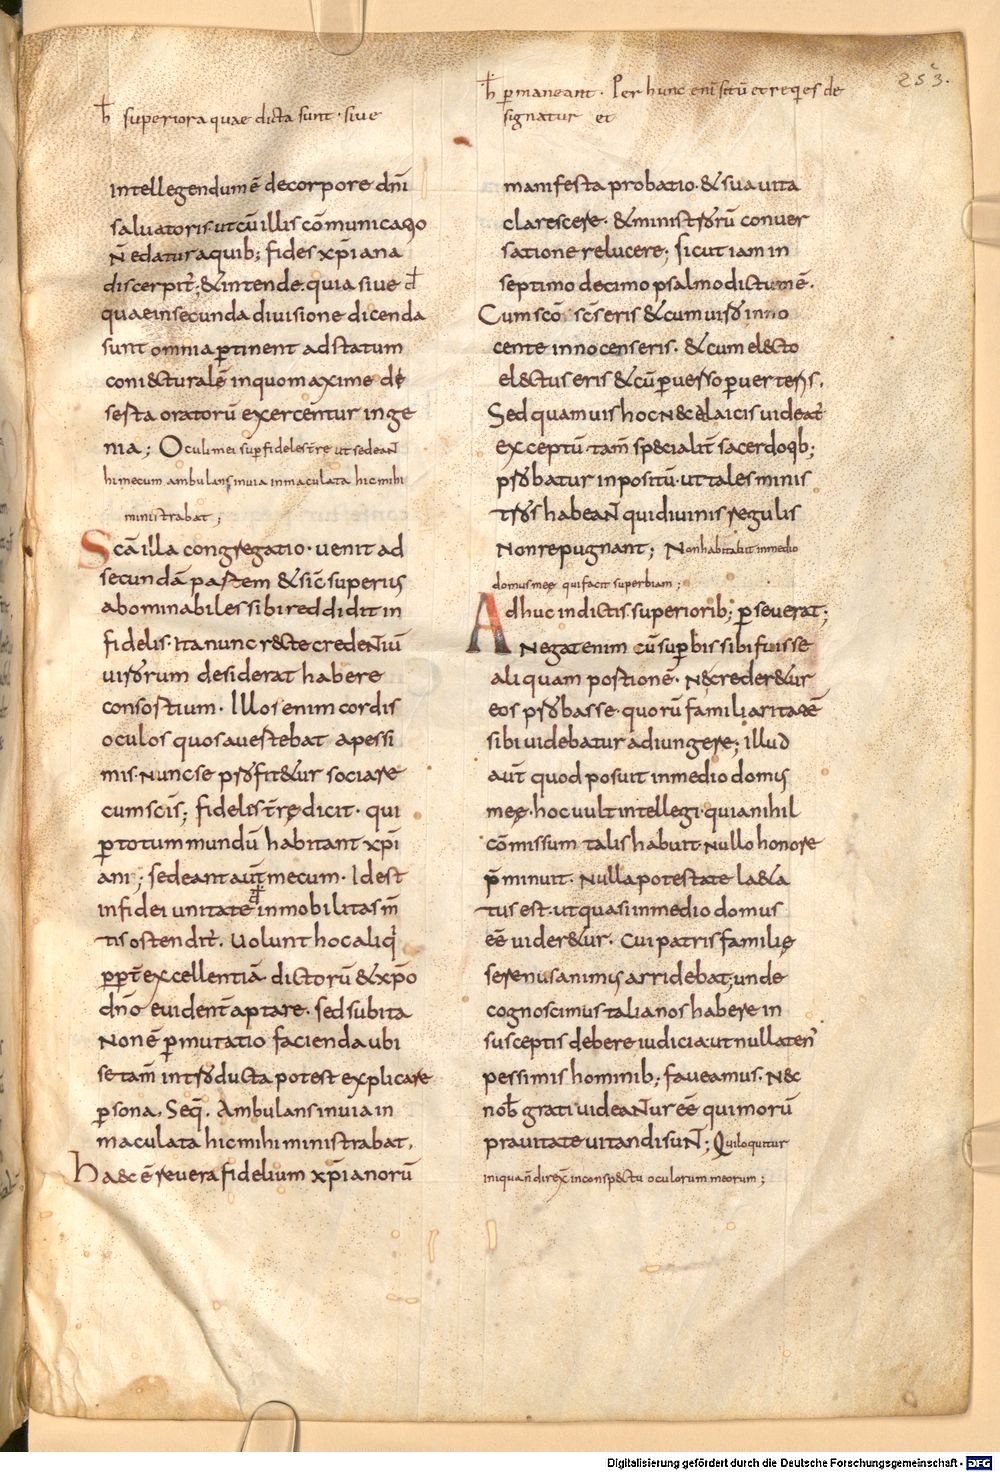 253.
ħ superiora quae dicta sunt · sive
intellegendum ē decorpore dn̄i
saluatoris · ut cū illis cōmunicatio
n̄ edatur a quib; fides xp̄iana
discerpit̄; & intende · quia siue đ
quae insecunda diuisione dicenda
sunt omnia ꝑtinent ad statum
coni&cturalē inquo maxime de
sesta oratorū exercentur inge
nia; Oculi mei sup̄ fideles t̄re ut sedeant
hi mecum ambulans inuia inmaculata hic mihi
ministrabat;
Sc̄a illa congregatio · uenit ad
secundā partem & sic̄ superius
abominabiles sibi reddidit in
fidelis · Ita nunc r&te credentiū
uirorum desiderat habere
consortium · Illos enim cordis
oculos quos auertebat apessi
mis · Nunc se profit&ur sociare
cum sc̄is; fidelis t̄rę dicit · qui
ꝑ totum mundū habitant xp̄i
ani; sedeant aut̄ mecum · Idest
infidei unitate inmobilitas m̄
tis ostendit̄. Uolunt hoc aliq̄
ꝑpt̄ excellentiā dictorū & xp̄o
dn̄o euident̄ aptare · sed subita
Non ē ꝑmutatio facienda ubi
se tam̄ introducta potest explicare
ꝑsona. Seq̄. Ambulans inuia in
maculata hic mihi ministrabat.
Haec ē reuera fidelium xp̄ianorū
ħ ꝑmaneant · Per hunc eni sitū et requies de
signatur et
manifesta probatio · & sua uita
clarescere · & ministrorū conuer
satione relucere; Sicut iam in
septimo decimo psalmo dictum ē.
Cum scō sc̄s eris & cum uiro inno
cente innocens eris · & cum el&cto
el&ctus eris & cū ꝑuerso ꝑuerteris.
Sed quamuis hoc n&de laicis uideat̄
exceptū · tam̄ specialit̄ sacerdotib;
probatur inpositū · ut tales minis
tros habeant qui diuinis regulis
Non repugnant; Non habitabit inmedio
domus meę qui facit superbiam;
Adhuc indictis superiorib; ꝑseuerat;
Negat enim cū superbis sibi fuisse
aliquam portionē · N&creder&ur
eos probasse · quorū familiaritatē
sibi uidebatur adiungere; Illud
aut̄ quod posuit inmedio domus
meę · hoc uult intellegi · quia nihil
cōmissum talis habuit · Nullo honore
p̄minuit · Nulla potestate la&a
tus est · ut quasi inmedio domus
eē uider&ur · Cui patris familię
serenus animis arridebat; unde
cognoscimus tali a nos habere in
susceptis debere iudicia · ut nullaten̄
pessimis hominib; faueamus · N&c
nob̄ grati uideantur eē qui morū
prauitate uitandi sunt; Qui loquitur
iniqua n̄ direx̄ inconsp&ctu oculorum meorum;
Digitalisierung gefördert durch die Deutsche Forschungsgemeinschaft - DFG